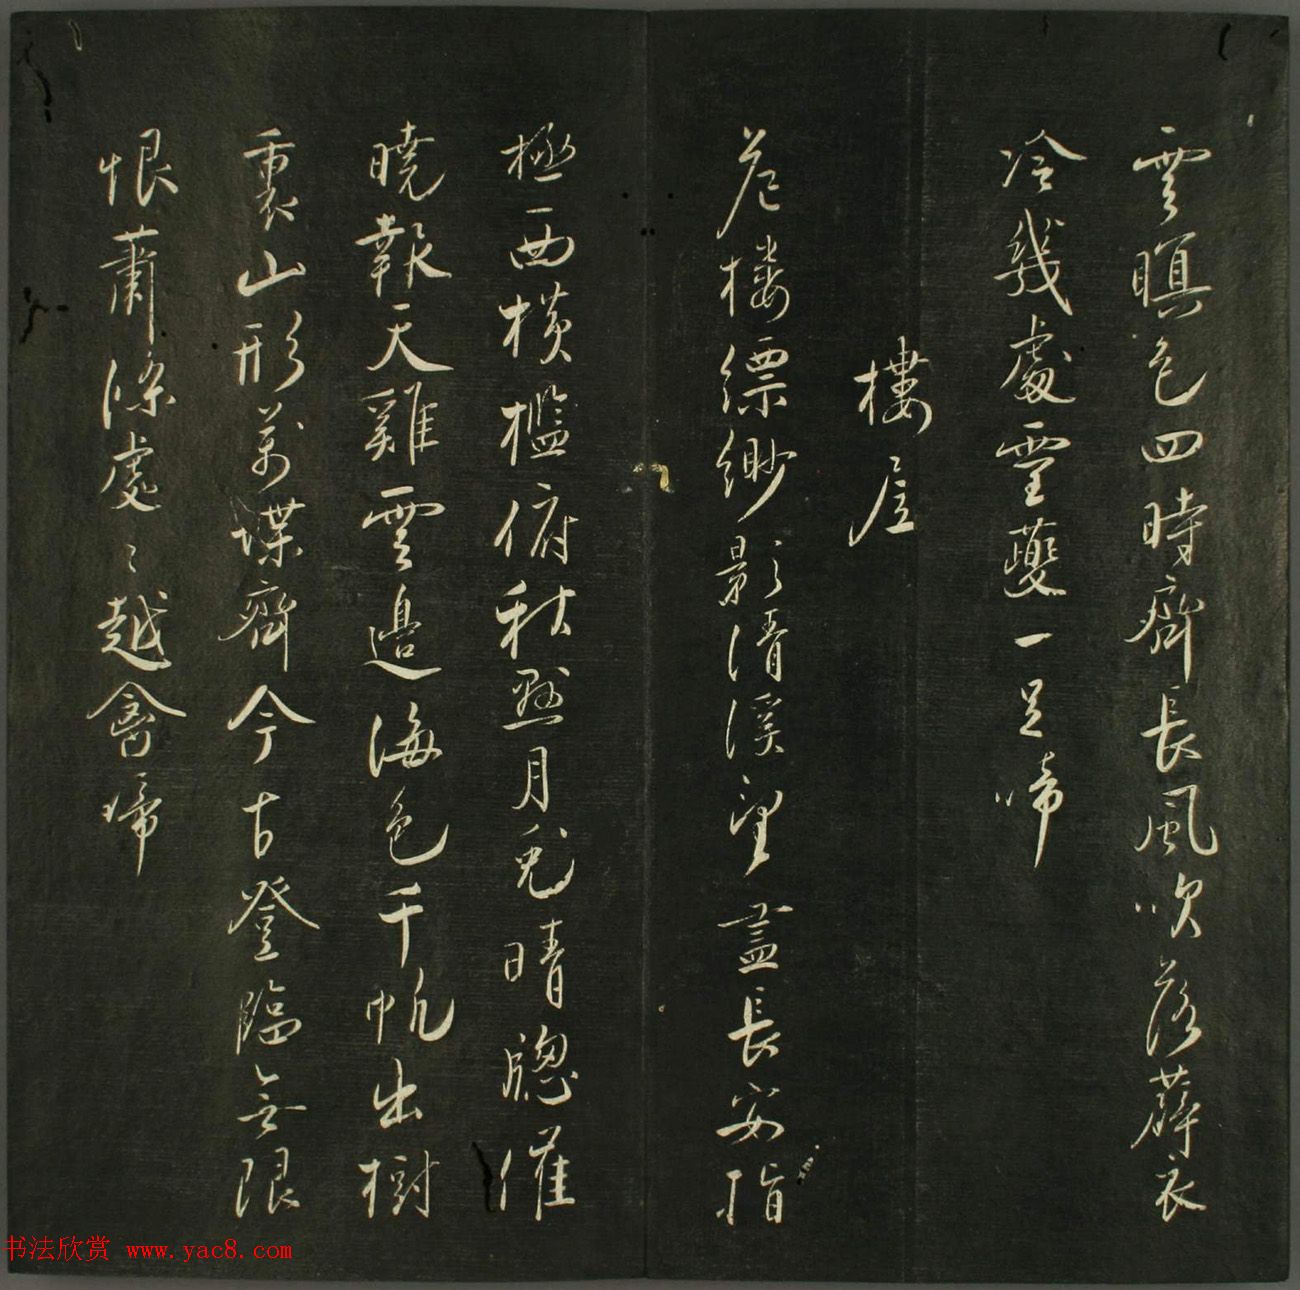 雲暝色四時齊長風吹落薜衣
冷幾處靈夔一足啼
樓
危樓縹緲影清溪望盡長安指
極西橫檻俯秋懸月兔晴牕催
曉報天雞雲邊海色千帆出樹
裏山形萬堞齊今古登臨無限
恨蕭條處〻越禽啼
书法欣赏 www.yac8.com